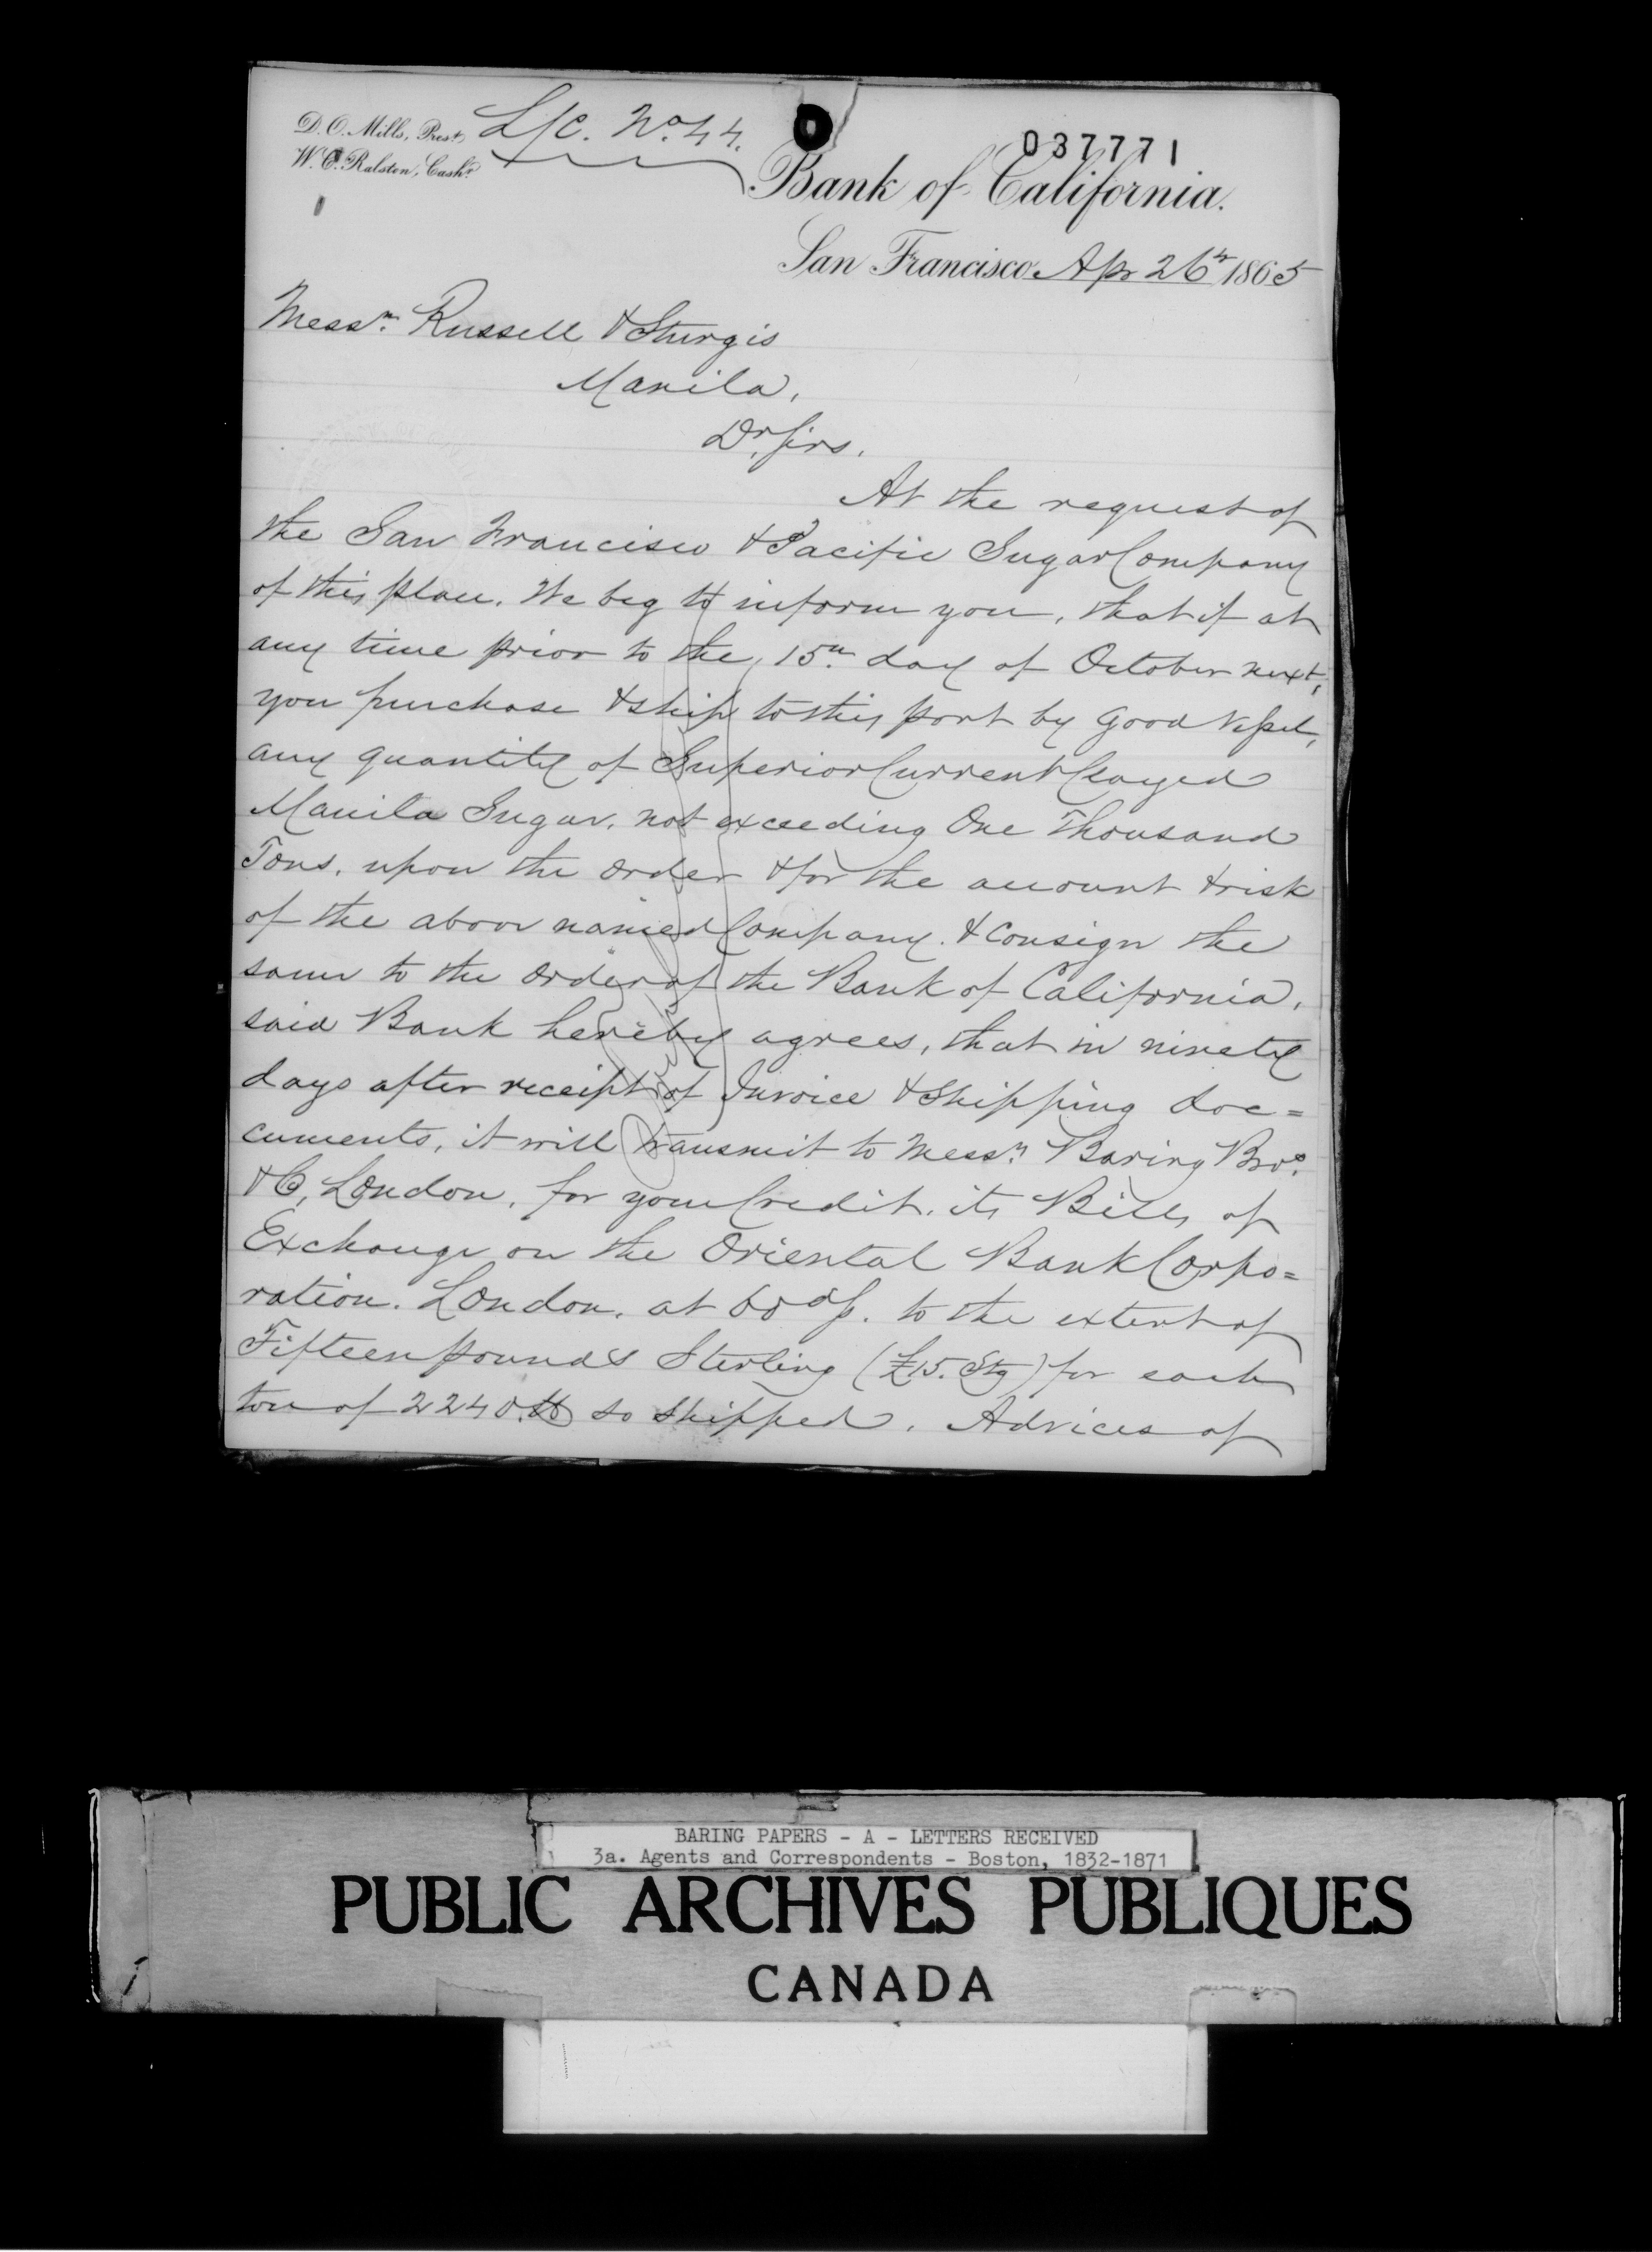 D.O. Mills, Prest.
L/C. No. 44.
037771
W.C. Ralston, Cashr.
Bank of California.
San Francisco Apr 26th 1865
Messrs. Russell & Sturgis
Manila,
Dr. Sirs,
At the request of
the San Francisco & Pacific Sugar Company
of this place. We beg to inform you, that if at
any time prior to the, 15th day of October next,
you purchase & ship to this port by good vessel,
any quantity of Superior Current Clayed
Manila Sugar, not exceeding One Thousand
Tons, upon the order & for the account & risk
of the above named Company. & consign the
same to the order of the Bank of California,
said Bank hereby agrees, that in ninety
days after receipt of Invoice & Shipping doc=
cuments, it will transmit to Messrs Baring Bros.
& Co, London, for your Credit, its Bills of
Exchange on the Oriental Bank Corpo=
ration. London. at 60 d/s. to the extent of
Fifteen pounds Sterling (£15. Stg) for each
ton of 2240 lb so shipped. Advices of
BARING PAPERS - A - LETTERS RECEIVED
3a. Agents and Correspondents - Boston, 1832-1871
PUBLIC ARCHIVES PUBLIQUES
CANADA